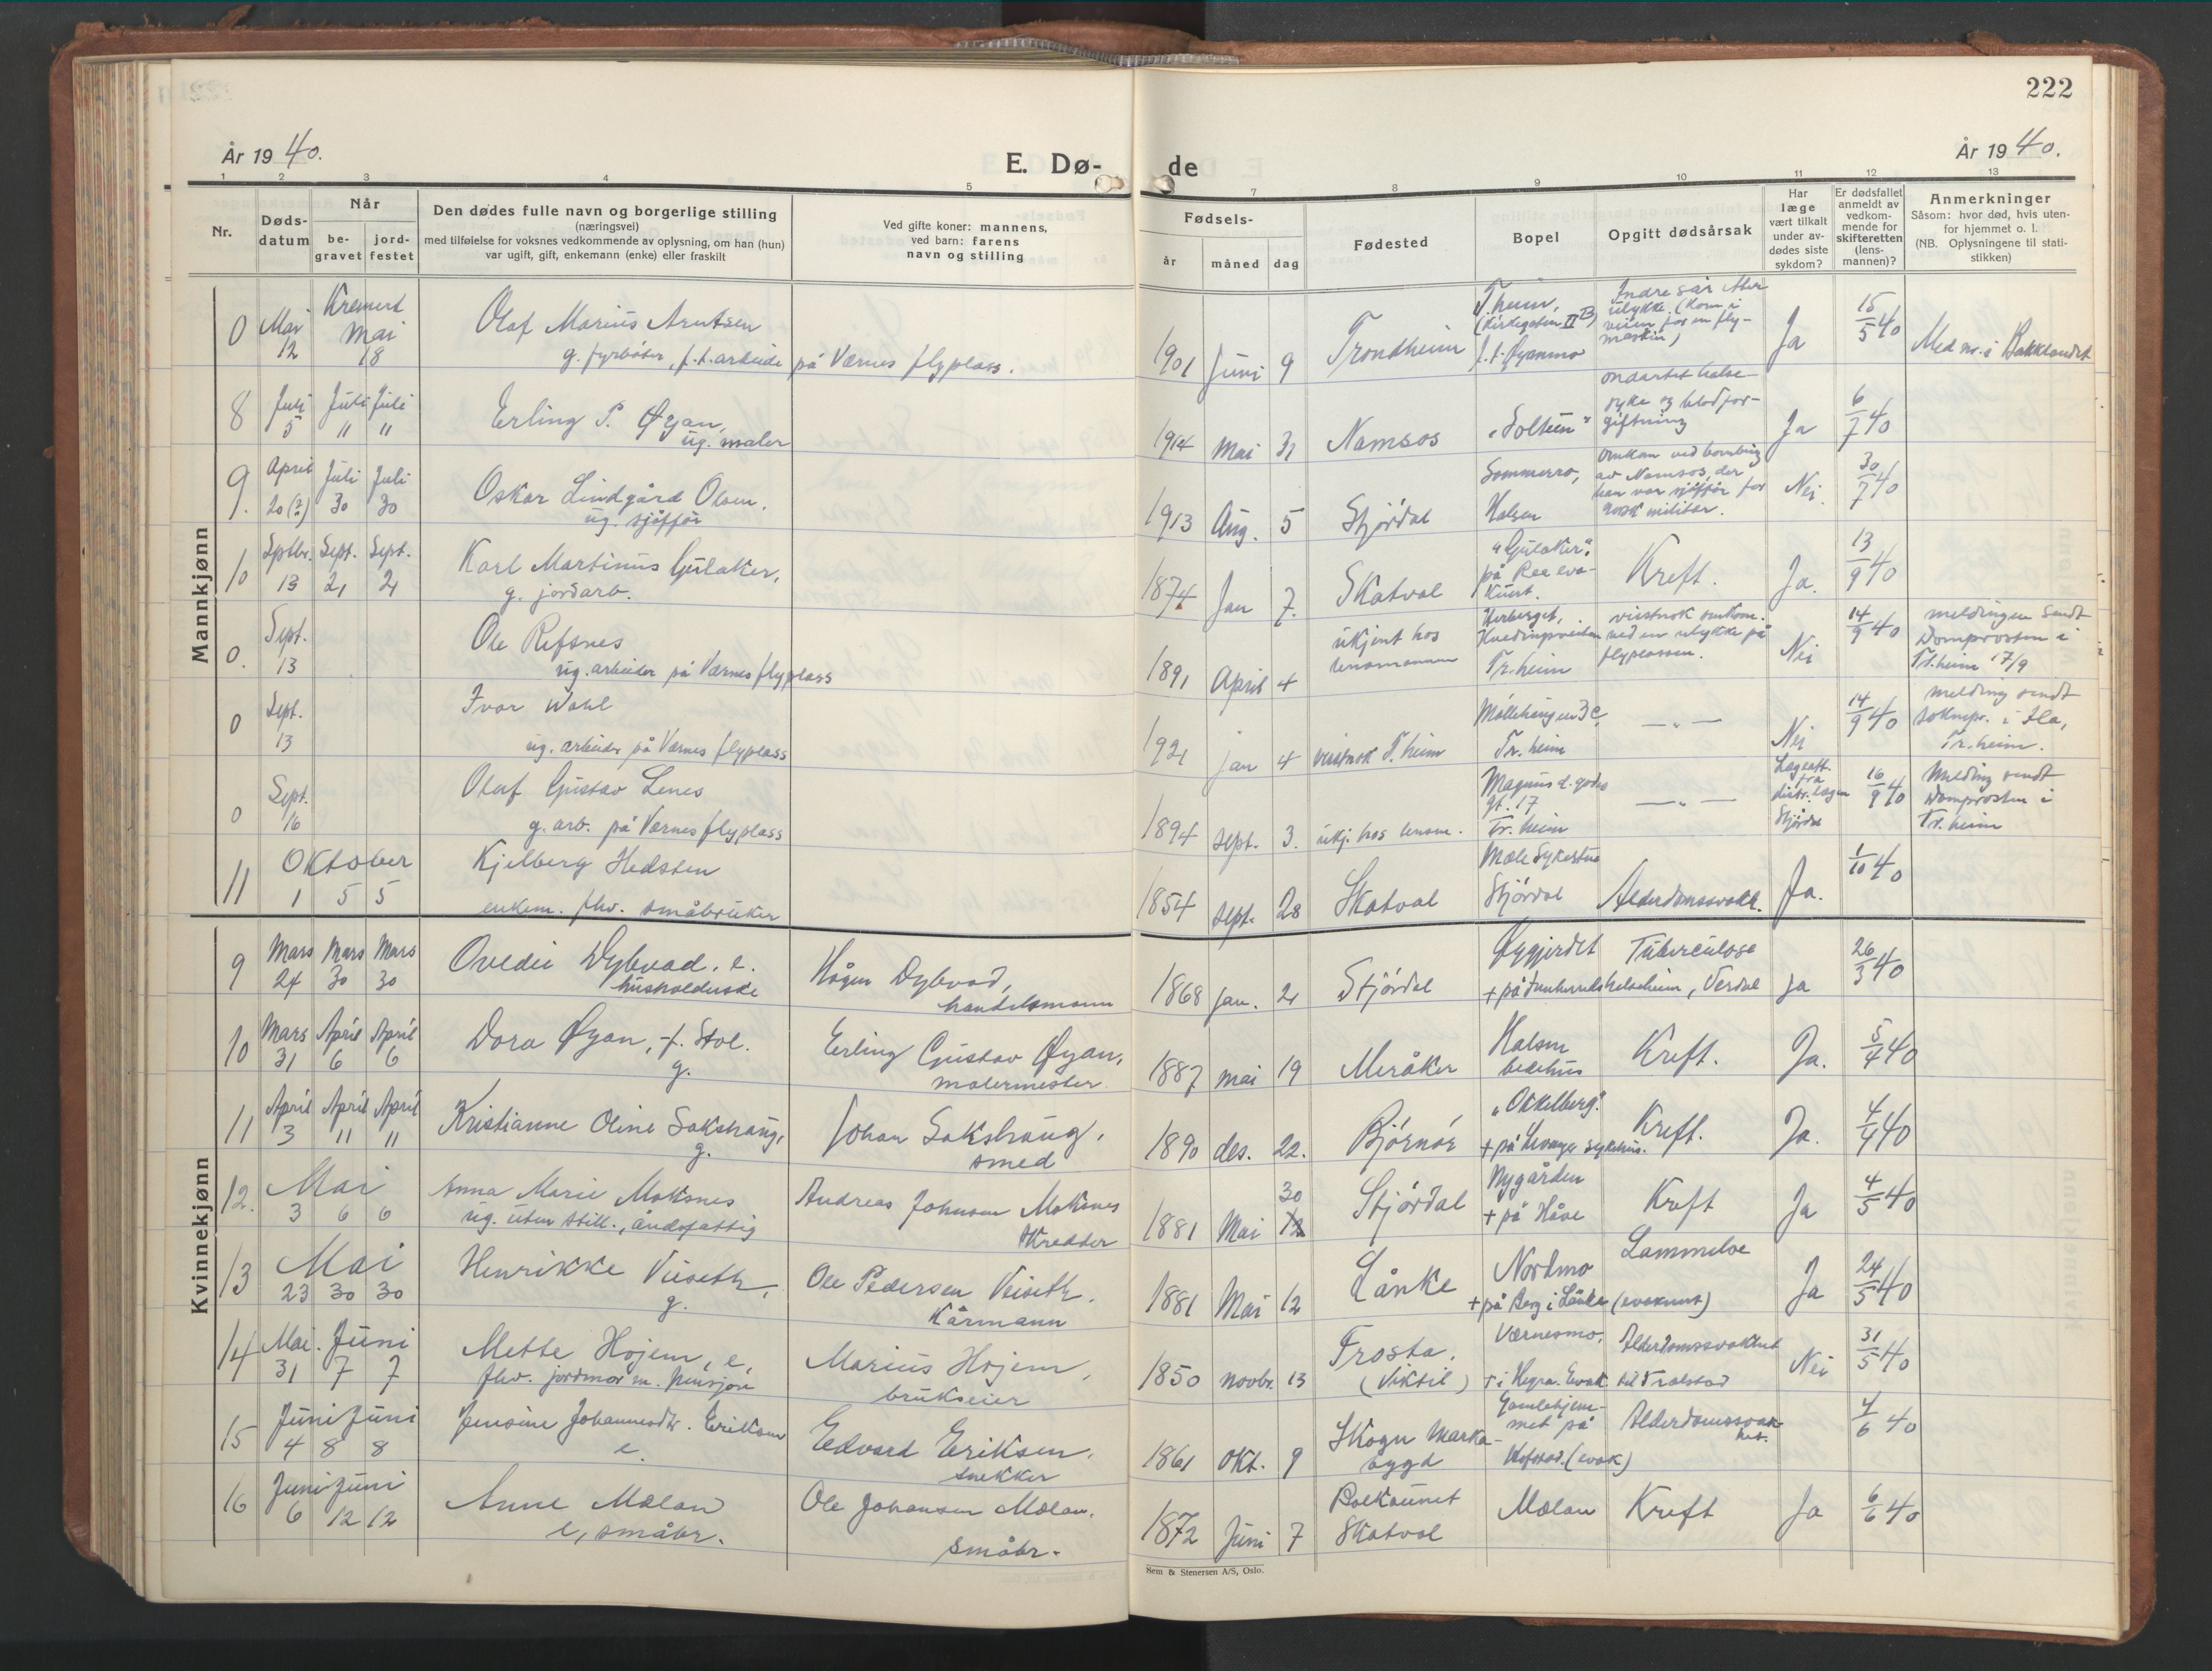 222
År 1940.
E. Dø-
de
År 1940.
1 2 3 4 5 7 8 9 10 11 12 13
Nr.
Døds-
datum
Når
be-
gravet
jord-
festet
Den dødes fulle navn og borgerlige stilling
(næringsvei)
med tilføielse for voksnes vedkommende av oplysning, om han (hun)
var ugift, gift, enkemann (enke) eller fraskilt
Ved gifte koner: mannens,
ved barn: farens
navn og stilling
Fødsels-
år måned dag
Fødested
Bopel
Opgitt dødsårsak
Har
læge
vært tilkalt
under av-
dødes siste
sykdom?
Er dødsfallet
anmeldt av
vedkom-
mende for
skifteretten
(lens-
mannen)?
Anmerkninger
Såsom: hvor død, hvis uten-
for hjemmet o. l.
(NB. Oplysningene til stati-
stikken)
Mannkjønn
0 Mai 12 Kremert Mai 18
Olaf Marius Arntsen
g. fyrbøter, f.t. arbeide på Værnes flyplass.
1901 Juni 9 Trondheim
T.heim,
Indre sår etter
ulykke. (Kom i
veien for en fly-
maskin)
Ja 15/5 40 Med nr. i Bakklandet
8 Juli 5 Juli " Juli "
Erling P. Øyan,
ug. maler
1914 Mai 31 Namsos "Soltun"
ondartet halse-
syke og blodfor-
giftning
Ja 6/7 40
9. April 20(?) Juli 30 Juli 30
Oskar Lindgård Olsen.
ug. sjåffør
1913 Aug. 5 Stjørdal
Sommerro,
Halsen
omkom ved bombing
av Namsos, der
han var sjåffør for
norsk militær.
Nei. 30/7 40
10 Septbr. 13 Sept. 21 Sept. 21
Karl Martinus Gulaker,
g. jordarb.
1874 Jan 7. Skatval
"Gulaker".
på Ree eva-
kuert.
Kreft. Ja. 13/9 40
0. Sept. 13
Ole Refsnes
ug. arbeider på Værnes flyplass
1891 April 4
ukjent hos
lensmannen
Herberget,
Tr.heim
visstnok omkom.
ved en ulykke på
flyplassen.
Nei 14/9 40
meldingen sendt
Domprosten i
Tr.heim 17/9
0 Sept. 13
Ivar Wahl
ug. arbeider på Værnes flyplass
1921 jan 4 visstnok T.heim
Tr. heim
— " —
Nei 14/9 40
melding sendt
soknepr. i Ila,
Tr.heim.
0 Sept. 16
Olaf Gustav Lenes
g. arb. på Værnes flyplass
1894 sept. 3. ukj. hos lensm.
Magnus d. godes
gt. 17
Tr. heim
— " —
Lægeatt.
fra
distr.lægen
Stjørdal
16/9 40
Melding sendt
Domprosten i
Tr. heim
11 Oktober 1 5 5
Kjelberg Hedsten
enkem. fhv. småbruker
1854 sept. 28 Skatval
Mæle Sykestue
Stjørdal
Alderdomssvakh. Ja. 1/10 40
Kvinnekjønn
9 Mars 24 Mars 30 Mars 30
Ovedie Dybvad, e.
husholderske
Hågen Dybvad,
handelsmann
1868 jan. 21 Stjørdal
Øygjerdet
Tuberculose
+ på Innherreds helseheim, Verdal
ja 26/3 40
10 Mars 31 April 6 April 6
Dora Øyan, f. Stol.
g.
Erling Gustav Øyan,
malermester
1887 mai 19 Meråker
Halsen
bedehus
Kreft. Ja. 5/4 40
11 April 3 April 11 April 11
Kristianne Oline Sakshaug,
g.
Johan Sakshaug,
smed
1890 des. 22. Bjørnør
"Okkelberg".
+ på Levanger sykehus.
Kreft. Ja. 4/4 40
12. Mai 3 6 6
Anna Marie Moksnes
ug. uten still., åndsfattig
Andreas Johnsen Moksnes
skredder
1881 Mai 30 12 Stjørdal
Nygården
+ på Håve
Kreft Ja 4/5 40
13 Mai 23 30 30
Henrikke Viseth,
g.
Ole Pedersen Veiseth.
kårmann
1881 Mai 12 Lånke
Nordmo
+ på Berg i Lånke (evakuert)
Lammelse
Ja 24/5 40
14 Mai 31 Juni 7 7
Mette Hojem, e,
fhv. jordmor m. pensjon
Marius Hojem,
brukseier
1850 novbr. 13
Frosta.
(Viktil)
Værnesmo.
+ i Hegra. Evak. til Trælstad
Alderdomssvakhet
Nei 31/5 40
15 Juni 4 Juni 8 8
Jensine Johannesdtr. Eriksen
e.
Edvard Eriksen.
snekker
1861 okt. 9
Skogn Marka-
bygd
Gamlehjem-
met på
Hofstad. (evak)
Alderdomssvak-
het.
4/6 40
16 Juni 6 Juni 12 12
Anne Mælan
e, småbr.
Ole Johansen Mælan.
småbr.
1872 Juni 7
Bolkaunet
Skatval
Mælan Kreft Ja 6/6 40
Sem & Stenersen A/S, Oslo.